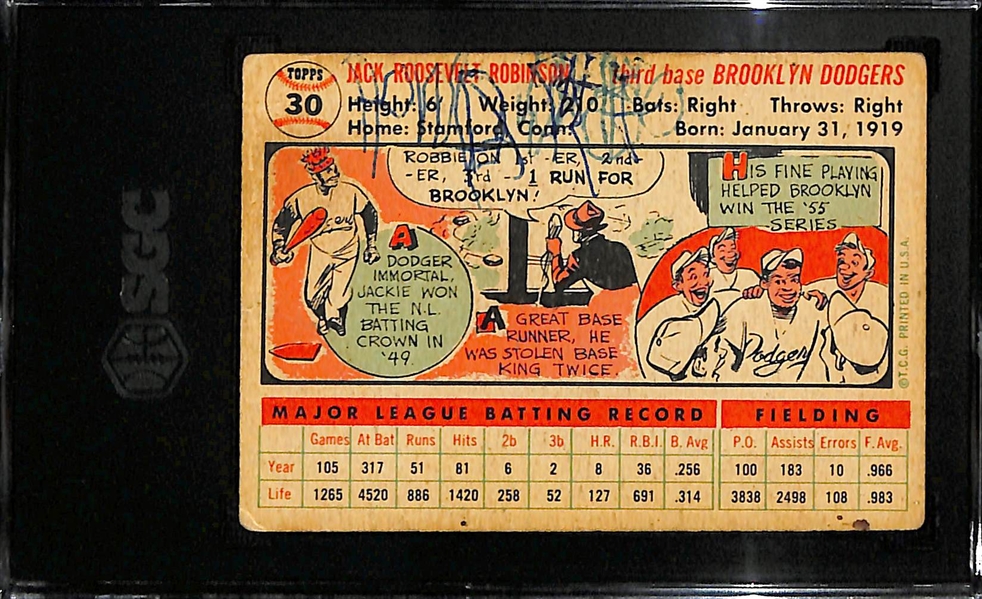 TOPPS
30
JACK ROOSEVELT ROBINSON third base BROOKLYN DODGERS
Height: 6' Weight: 210 Bats: Right Throws: Right
Home: Stamford, Conn. Born: January 31, 1919
ROBBIE ON 1st -ER, 2nd-
-ER, 3rd - 1 RUN FOR
BROOKLYN!
HIS FINE PLAYING
HELPED BROOKLYN
WIN THE '55
SERIES
A
DODGER
IMMORTAL,
JACKIE WON
THE N.L.
BATTING
CROWN IN
'49.
A GREAT BASE
RUNNER, HE
WAS STOLEN BASE
KING TWICE.
Dodgers
©T.C.G. PRINTED IN U.S.A.
SGC
MAJOR LEAGUE BATTING RECORD FIELDING
Games At Bat Runs Hits 2b 3b H.R. R.B.I. B. Avg P.O. Assists Errors F. Avg.
Year 105 317 51 81 6 2 8 36 .256 100 183 10 .966
Life 1265 4520 886 1420 258 52 127 691 .314 3838 2498 108 .983